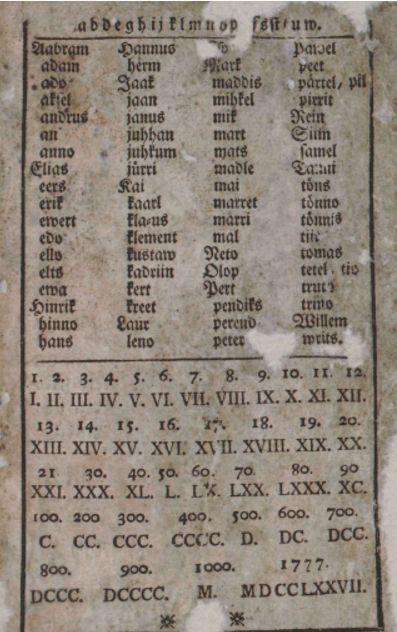 abdeghijklmnop ſsſtuw.
Aabram Hannus Pawel
adam herm Mark peet
ado Jaak maddis pärtel, pil
akſel jaan mihkel pirrit
andrus janus mik Rein
an juhhan mart Siim
anno juhkum mats ſamel
Elias jürri madle Tanni
eers Kai mai töns
erik kaarl marret tönno
ewert klaus marri tönnis
edo klement mal
ello kustaw Neto tomas
elts kadriin Olop tetel, tio
ewa kert Pert
Hinrik kreet pendiks trino
hinno Laur perend Willem
hans leno peter writs.
1. 2. 3. 4. 5. 6. 7. 8. 9. 10. 11. 12.
I. II. III. IV. V. VI. VII. VIII. IX. X. XI. XII.
13. 14. 15. 16. 17. 18. 19. 20.
XIII. XIV. XV. XVI. XVII. XVIII. XIX. XX.
21 30. 40. 50. 60. 70. 80. 90
XXI. XXX. XL. L. LX. LXX. LXXX. XC.
100. 200 300. 400. 500. 600. 700.
C. CC. CCC. CCCC. D. DC. DCC.
800. 900. 1000. 1777.
DCCC. DCCCC. M. MDCCLXXVII.